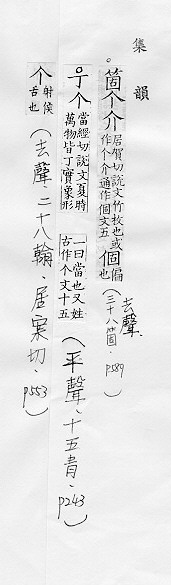 集韻
。箇个介居賀切說文竹枚也或作个介通作個文五個偏也(去聲、三十八箇、p589)
。丁个當經切說文夏時萬物皆丁實象形一曰當也又姓古作个文十五(平聲、十五青、p243)
个射侯舌也(去聲、二十八翰、居案切、p553)